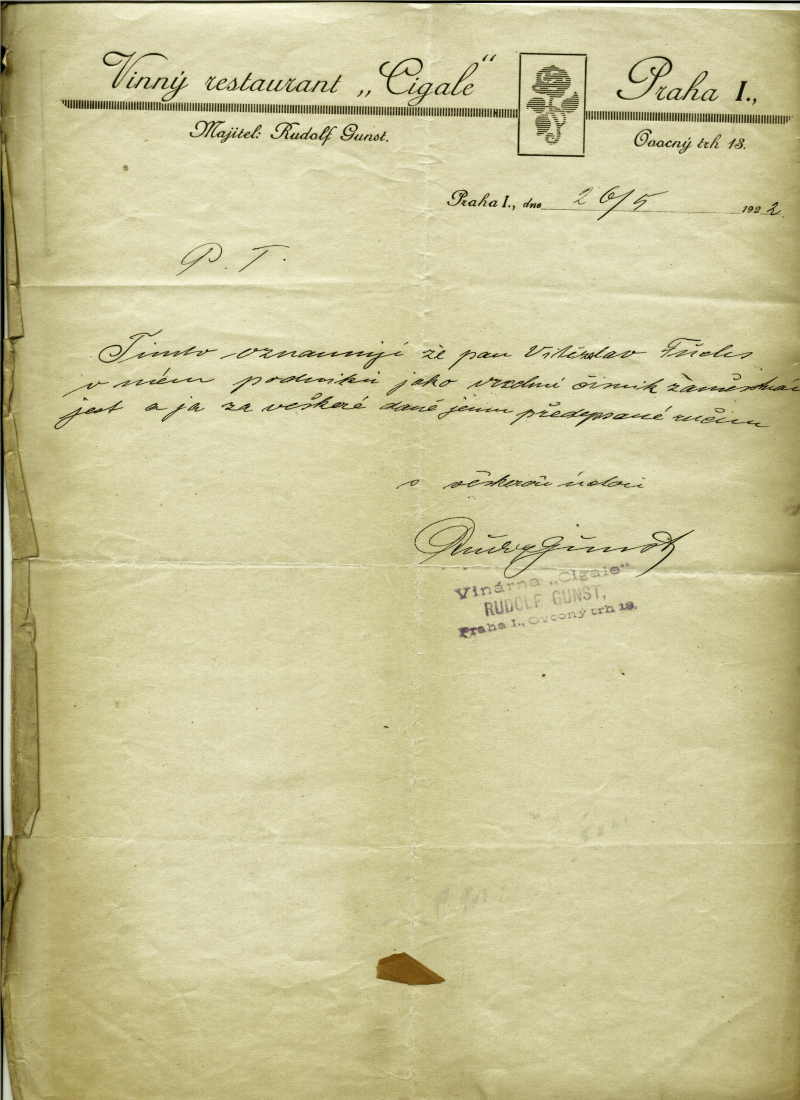 Vinný restaurant „Cigale“ Praha I.,
Majitel: Rudolf Gunst. Ovocný trh 13.
Praha I., dne 26/5 1922
P. T.
Tímto oznamuji že pan Vítězslav Fuchs
v mém podniku jako vrchní číšník zaměstnán
jest a ja za veškeré daně jemu předepsané ručím
s veškerou úctou
Rudolf Gunst
Vinárna „Cigale“
RUDOLF GUNST,
Praha I., Ovocný trh 13.